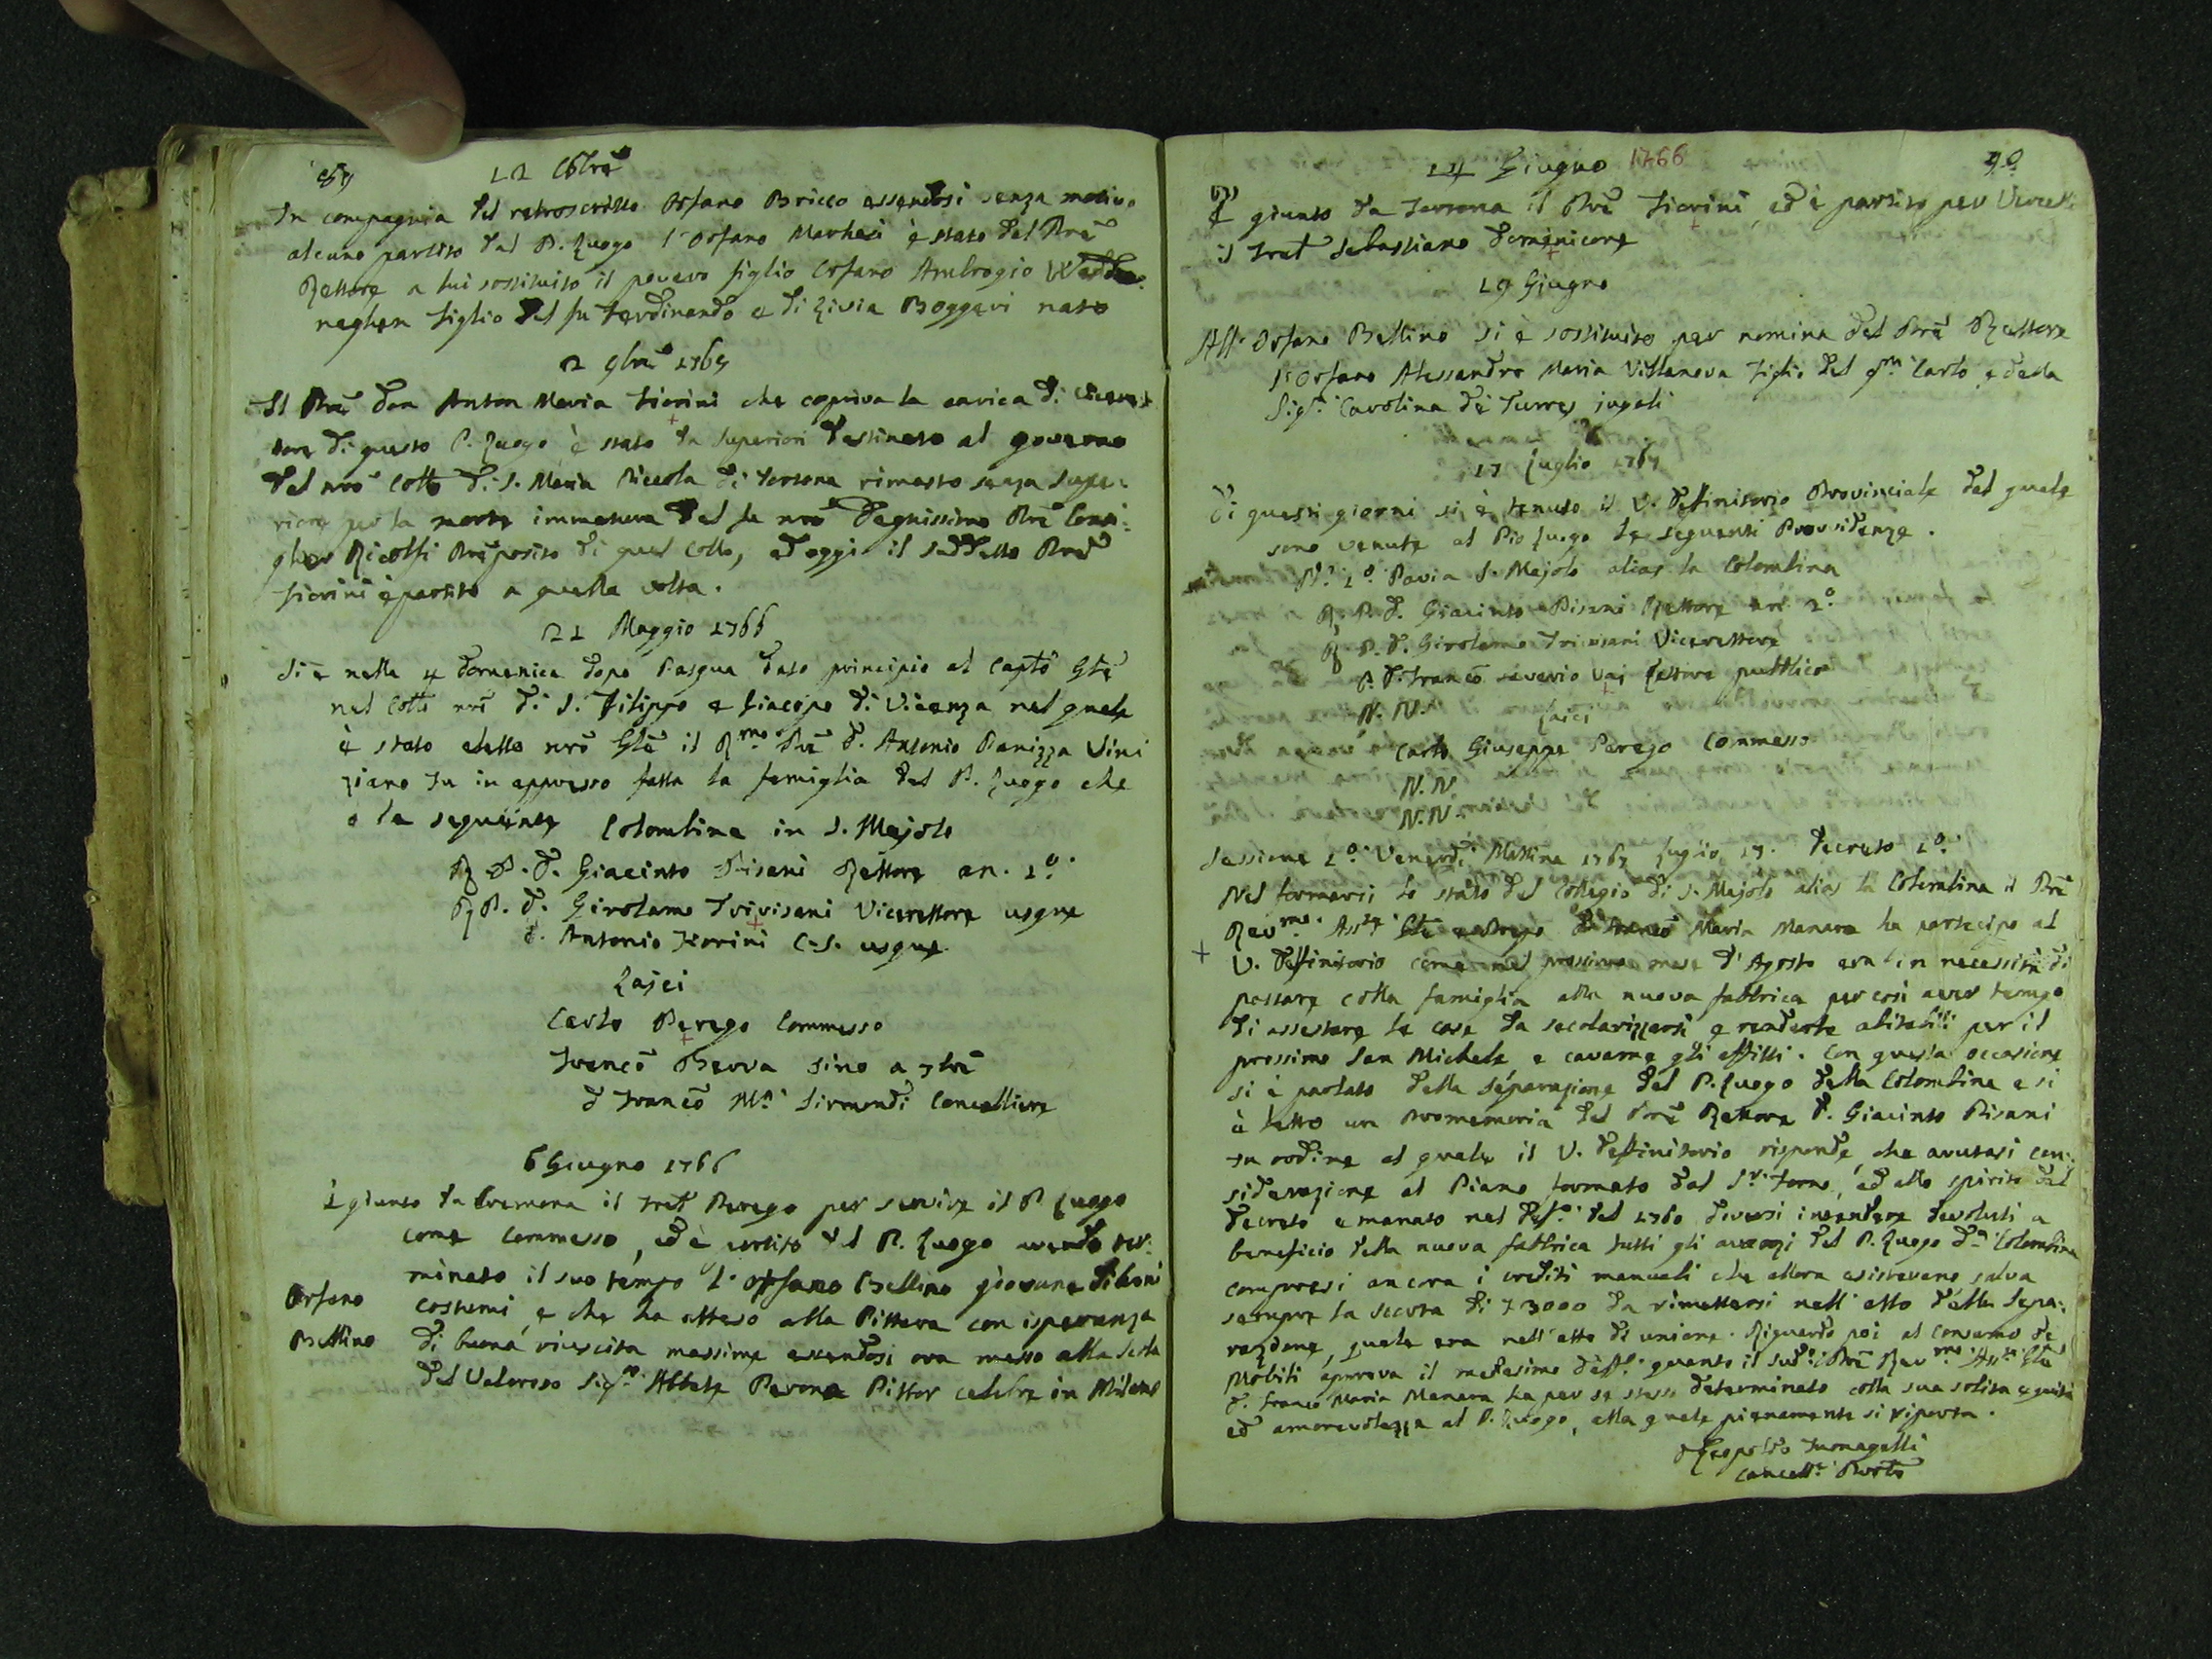 89
12 Obre
In compagnia del retroscritto Orfano Bricco essendosi senza motivo
alcuno partito dal P. Luogo l'Orfano Marchesi è stato dal Pre
Rettore a lui sostituito il povero figlio Orfano Ambrogio
naghen figlio del fu Ferdinando e di Livia Boggeri nato
2 9bre 1765
Il Pre Don Anton Maria Fiorini che copriva la carica di Viceret
tore di questo P. Luogo è stato da Superiori destinato al governo
del nro Collo di S. Maria Piccola di Tortona rimasto senza Supe:
riore per la morte immatura del fu nro degnissimo Pre Consi:
glier Ricolfi Preposito di quel Collo, ed oggi il suddetto Pre
Fiorini è partito a quella volta.
21 Maggio 1766
Si è nella 4 domenica dopo Pasqua dato principio al Capto Gle
nel Collo nro di S. Filippo e Giacopo di Vicenza nel quale
è stato eletto nro Gle il Rmo Pre D. Antonio Panizza Vini
ziano fu in appresso fatta la famiglia del P. Luogo che
e la seguente Colombina in S. Majolo
R. P. D. Giacinto Pisani Rettore an. 1º
R P. D. Girolamo Trivisani Vicerettore usque
D. Antonio Fiorini C.S. usque
Laici
Carlo Perego Commesso
Franco Berva sino a 7bre
D Franco Ma Sirmondi Cancelliere
6 Giugno 1766
È giunto da Cremona il Frat Perego per servire il P. Luogo
come Commesso, ed è sortito dal P. Luogo avendo ter:
minato il suo tempo l'orfano Bellino giovane di boni
Orfano
Bellino
costumi, e che ha atteso alla Pittura con isperanza
di buona riuscita massime essendosi ora messo alla scola
del Valoroso Sigre Abbate Perona Pittor celebre in Milano
90
14 Giugno 1766
È giunto da Tortona il Pre Fiorini, ed è partito per Vercelli
il Frat Sebastiano Domenicone
19 Giugno
All'Orfano Bellino si è sostituito per nomina del Pre Rettore
l'Orfano Alessandro Maria Villanova figlio del qm Carlo, e della
Siga Carolina de Turres jugali
17 Luglio 1767
Di questi giorni si è tenuto il V. Deffinitorio Provinciale dal quale
sono venute al Pio Luogo le seguenti Providenze.
Nº 1º Pavia S. Majolo alias la Colombina
R. P. D. Giacinto Pisani Rettore an. 2º
R. P. D. Girolamo Trivisani Vicerettore
P. D. Franco Saverio Vai Lettore pubblico
N. N. Laici
Carlo Giuseppe Perego Commesso
N. N.
N. N.
Sessione 1ª Venerdì Mattina 1767 Luglio 17. Decreto 1º
Nel formarsi lo stato del Collegio di S. Majolo alias la Colombina il Pre
Revmo Asste Gle D. Franco Maria Manara ha partecipo al
+
V. Deffinitorio come nel prossimo mese d'Agosto era in necessità di
passare colla famiglia alla nuova fabbrica per così aver tempo
di assestare le case da secolarizzarsi e renderle abitabili per il
prossimo San Michele e cavarne gli affitti. Con questa occasione
si è parlato della separazione del P. Luogo della Colombina e si
è letto un Promemoria del Pre Rettore D. Giacinto Pisani
in ordine al quale il V. Deffinitorio risponde, che avutasi con:
siderazione al Piano formato dal Sr Forno, ed allo spirito del
decreto emanato nel Deffo del 1760 doversi intendere devoluti a
beneficio della nuova fabbrica tutti gli avanzi del P. Luogo da Colombina
compresi ancora i crediti manuali che allora esistevano, salva
sempre la scorta di 3000 da rimettersi nell'atto della sepa:
razione, quale era nell'atto di unione. Riguardo poi al consumo de
Mobili aprova il medesimo Deffo quanto il sudo Pre Revmo Asste Gle
D. Franco Maria Manara ha per se stesso determinato colla sua solita equità
ed amorevolezza al P. Luogo, alla quale pienamente si riporta.
D Leopoldo Fumagalli
Cancelle Provle